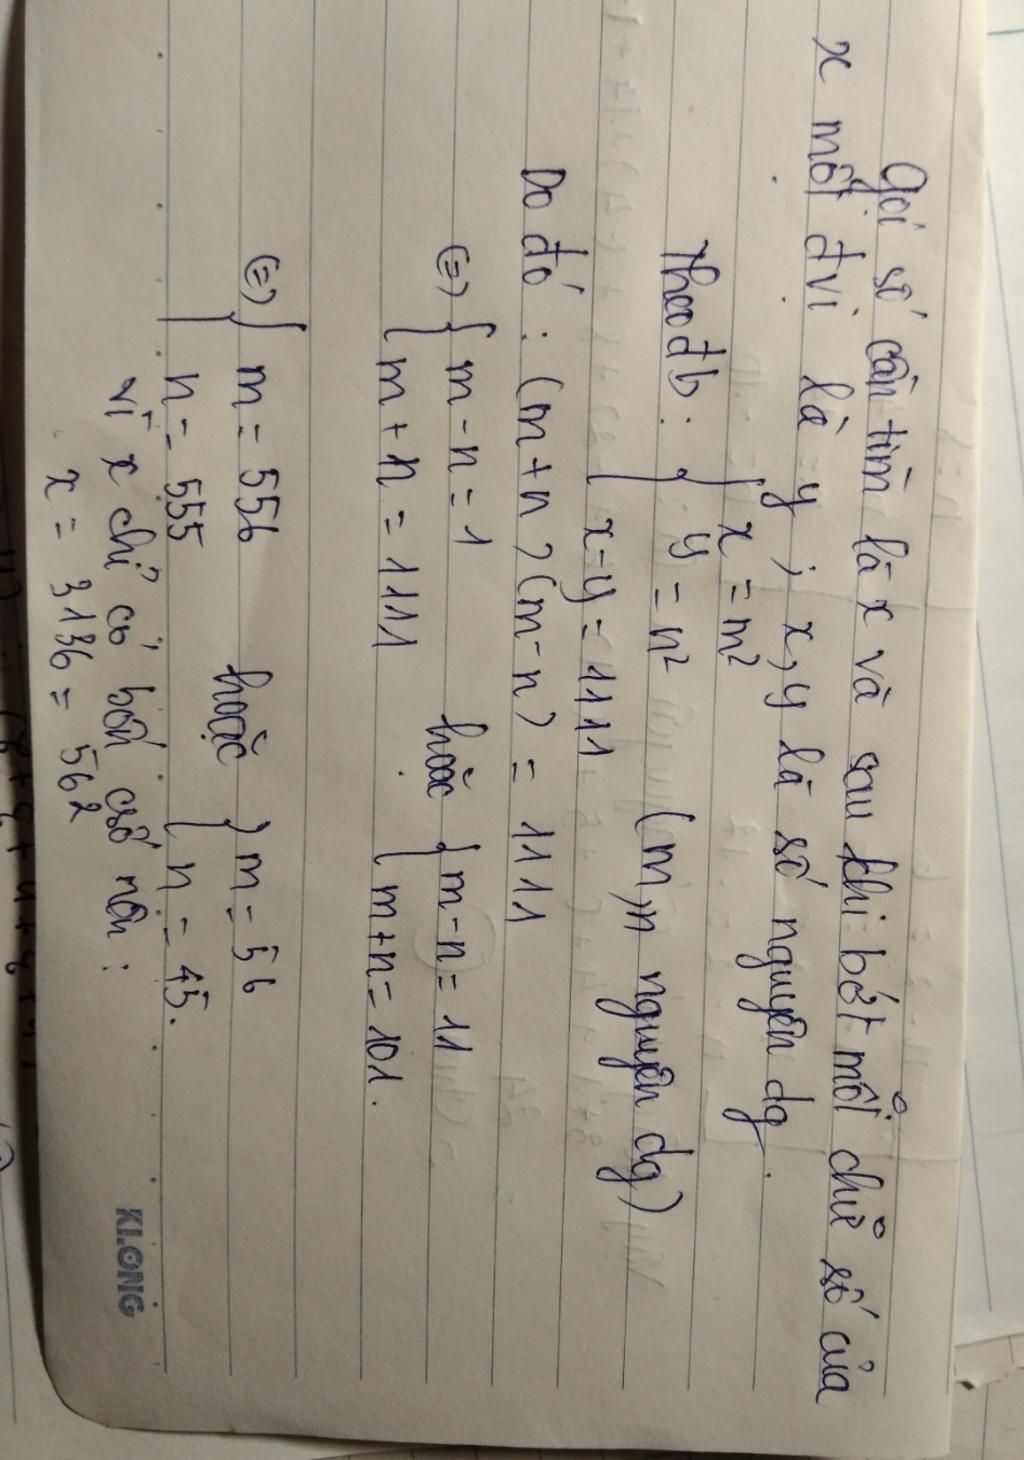 Gọi số cần tìm là x và sau khi bớt mỗi chữ số của
x một đvị là y ; x, y là số nguyên dg.
Theo đb : { x = m²
y = n² (m, n nguyên dg)
x - y = 1111
Do đó : (m + n) (m - n) = 1111
(=) { m - n = 1 hoặc { m - n = 11
m + n = 1111 m + n = 101.
(=) { m = 556 hoặc { m = 56
n = 555 n = 45.
vì x chỉ có bốn csố nên :
x = 3136 = 56²
KLONG